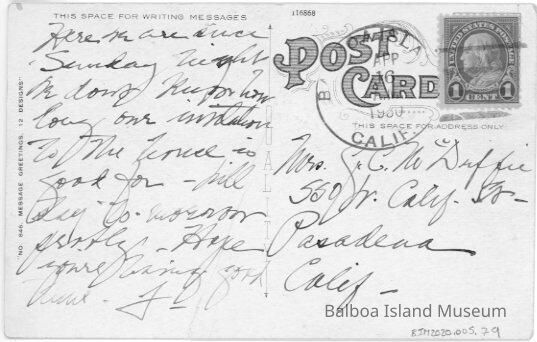 THIS SPACE FOR WRITING MESSAGES
116868
Here we are since
Sunday night
We don't know how
long our invitation
To the house is
good for - will
stay to-morrow
prob'ly - Hope
you're having good
time.
NO. 846, MESSAGE GREETINGS. 12 DESIGNS
POST CARD
APR
16
1930
CALIF.
UNITED STATES POSTAGE
1 CENT 1
THIS SPACE FOR ADDRESS ONLY
Mrs. J. C. McDuffie
550 W. Calif. St-
Pasadena
Calif-
Balboa Island Museum
BIM2020.005.79